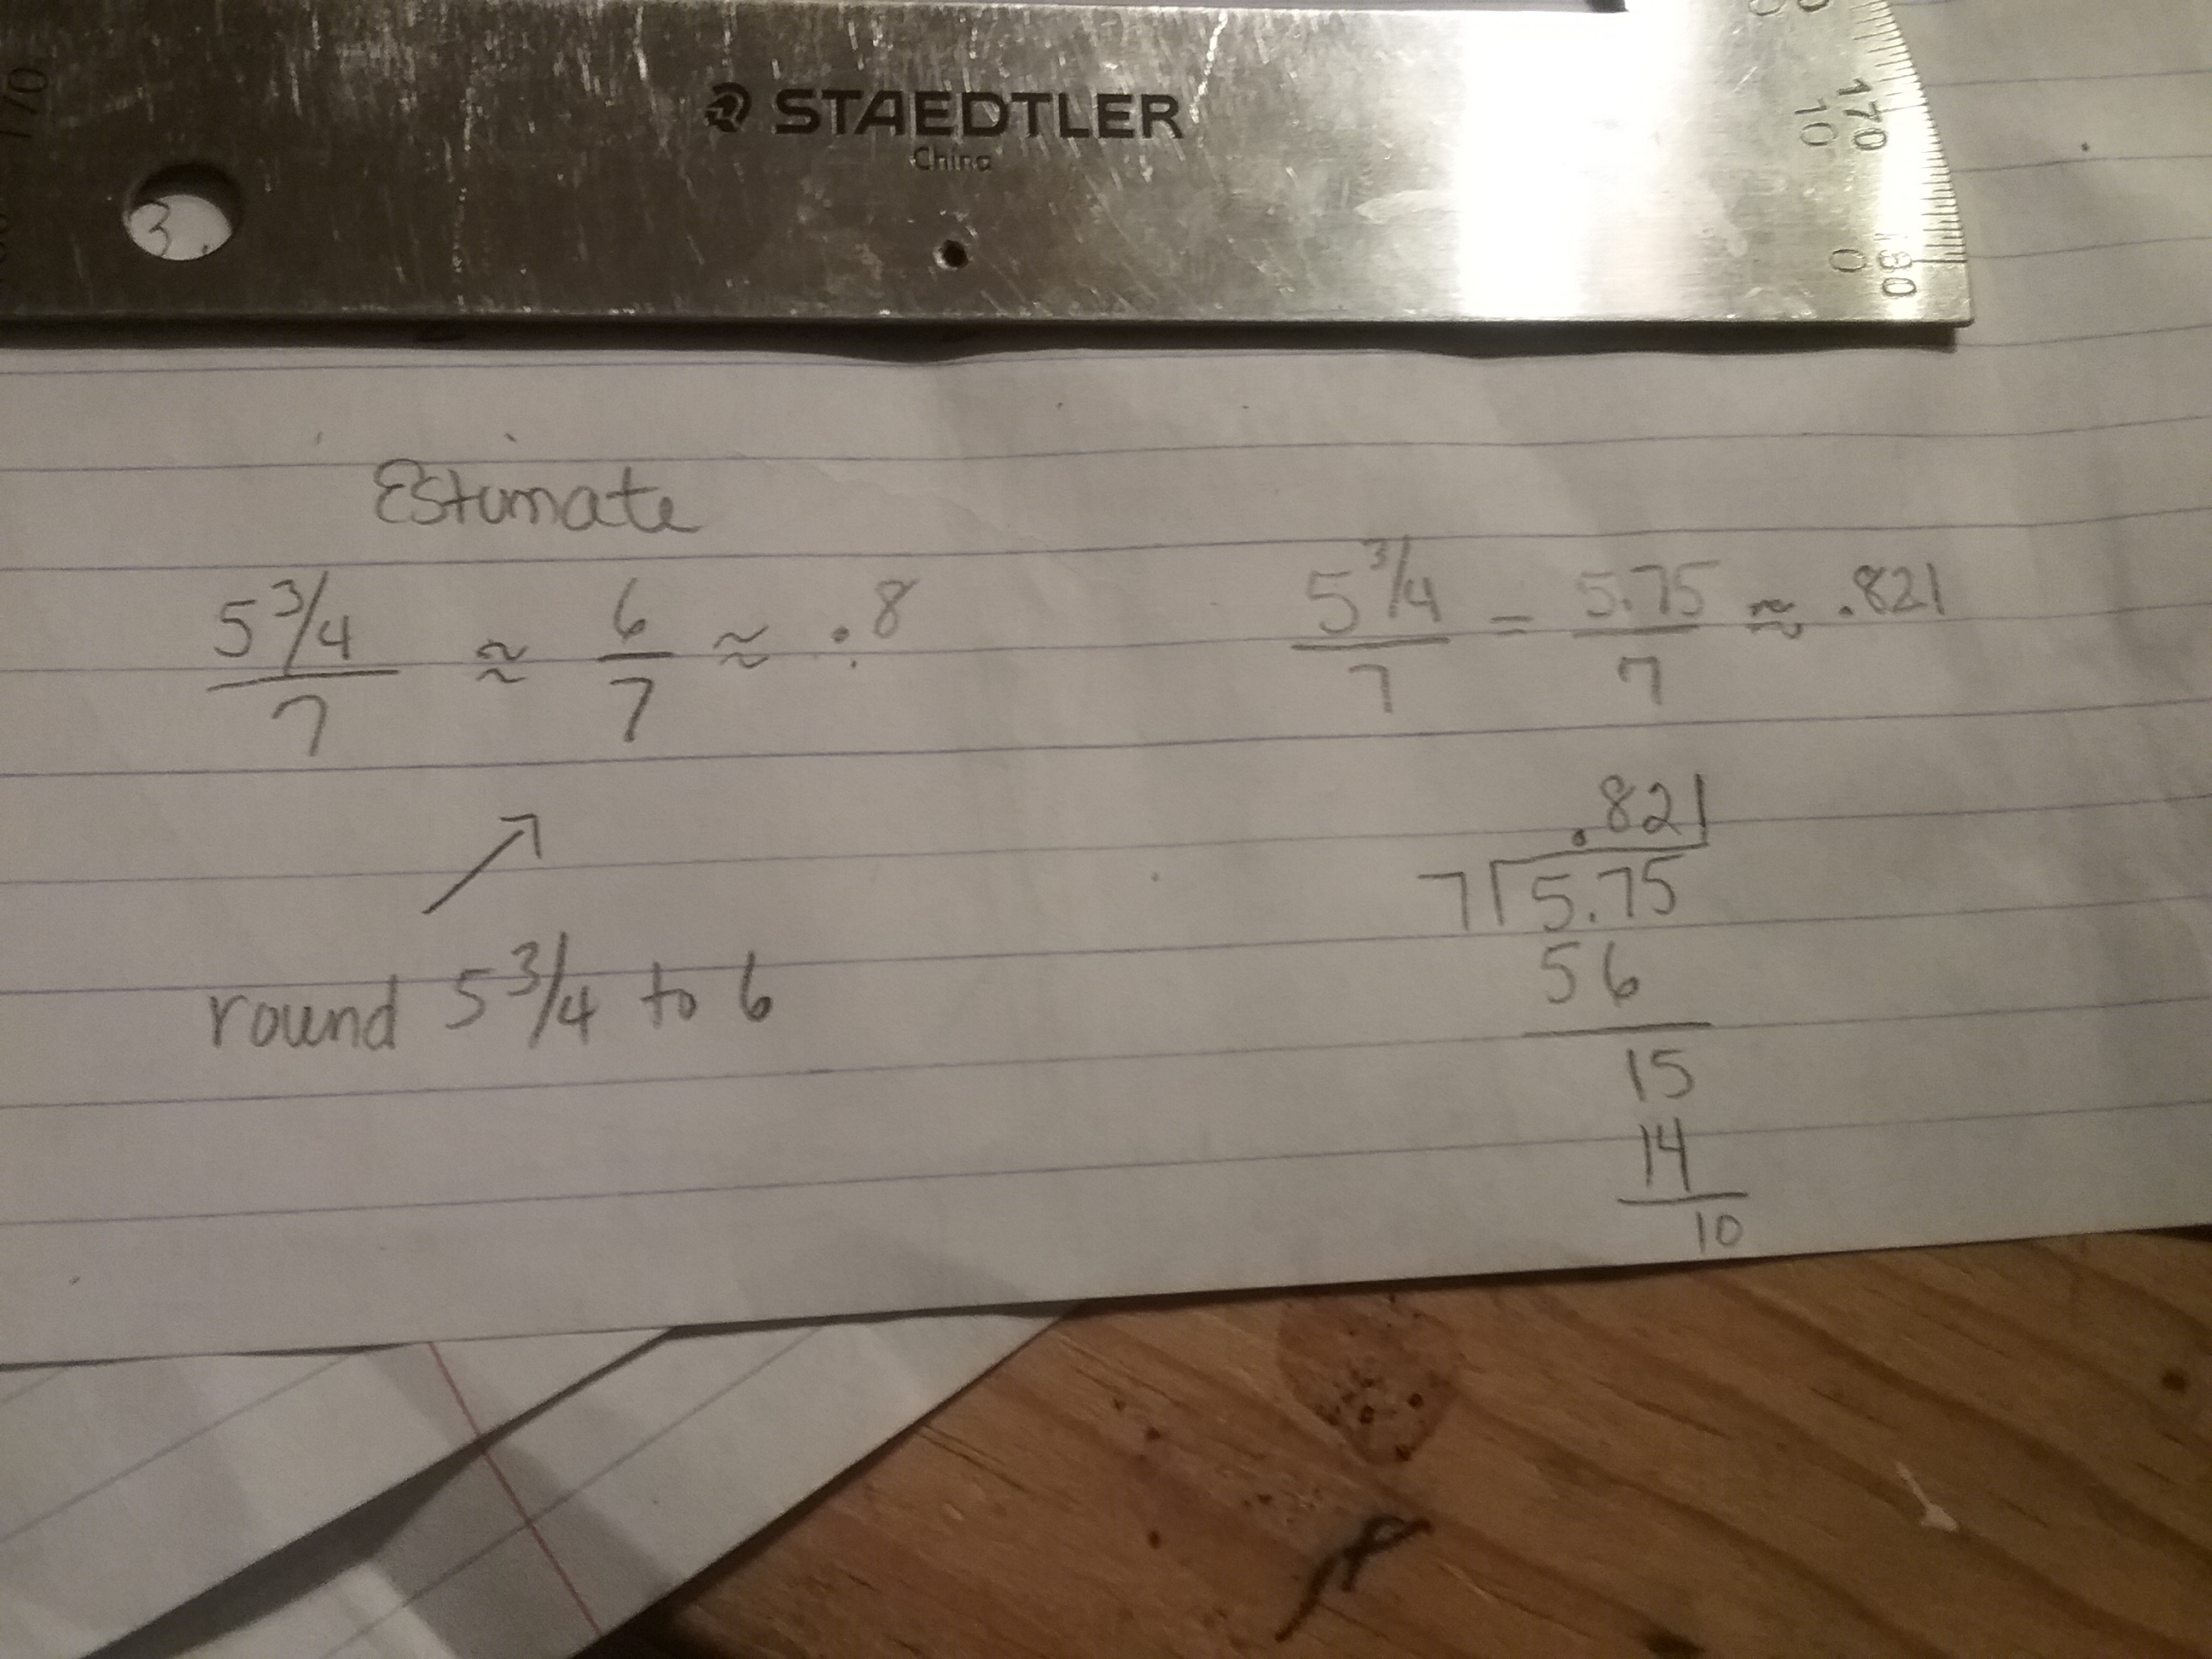 STAEDTLER
China
170
10
180
0
170
3.
Estimate
5 3/4 / 7 ≈ 6/7 ≈ .8
round 5 3/4 to 6
5 3/4 / 7 = 5.75 / 7 ≈ .821
.821
7 5.75
56
15
14
10